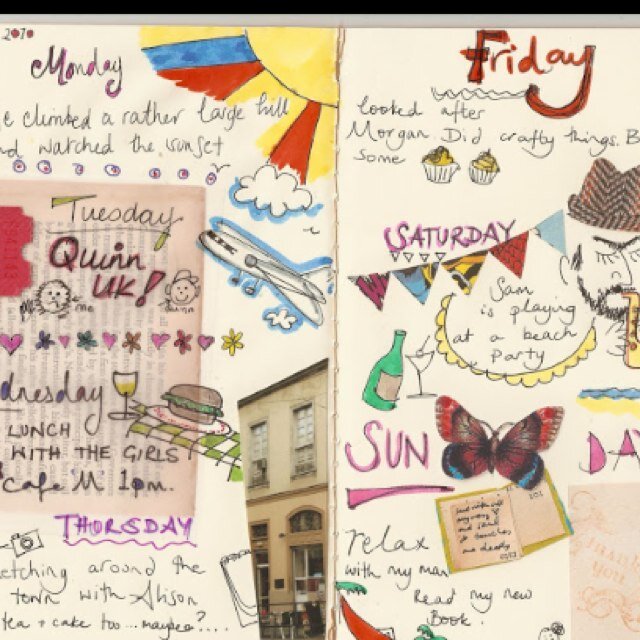 2010
Monday
e climbed a rather large hill
nd watched the sunset
Tuesday
Quinn
UK!
me
Quinn
dnesday
LUNCH
WITH THE GIRLS
Cafe 'M' 1pm.
THORSDAY
etching around the
town with Alison
tea + cake too... maybe?....
Friday
looked after
Morgan. Did crafty things. B
some
SATURDAY
Sam
is playing
at a beach
Party
SUN DA
relax
with my man
Read my new
Book.